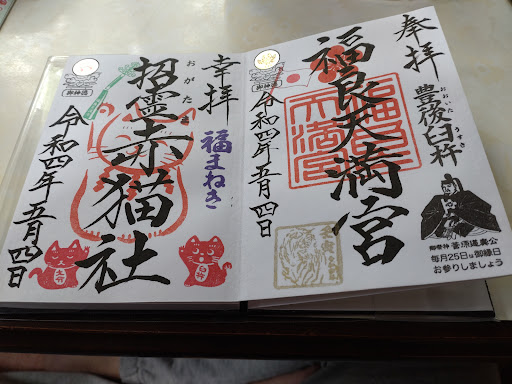 奉拝
豊後臼杵
おおいた うすき
福良天満宮
福良
天満宮
令和四年五月四日
御祭神 菅原道真公
毎月25日は御縁日
お参りしましょう
幸拝
福まねき
おがたま
招霊赤猫社
令和四年五月四日
御神酒
大分
臼杵